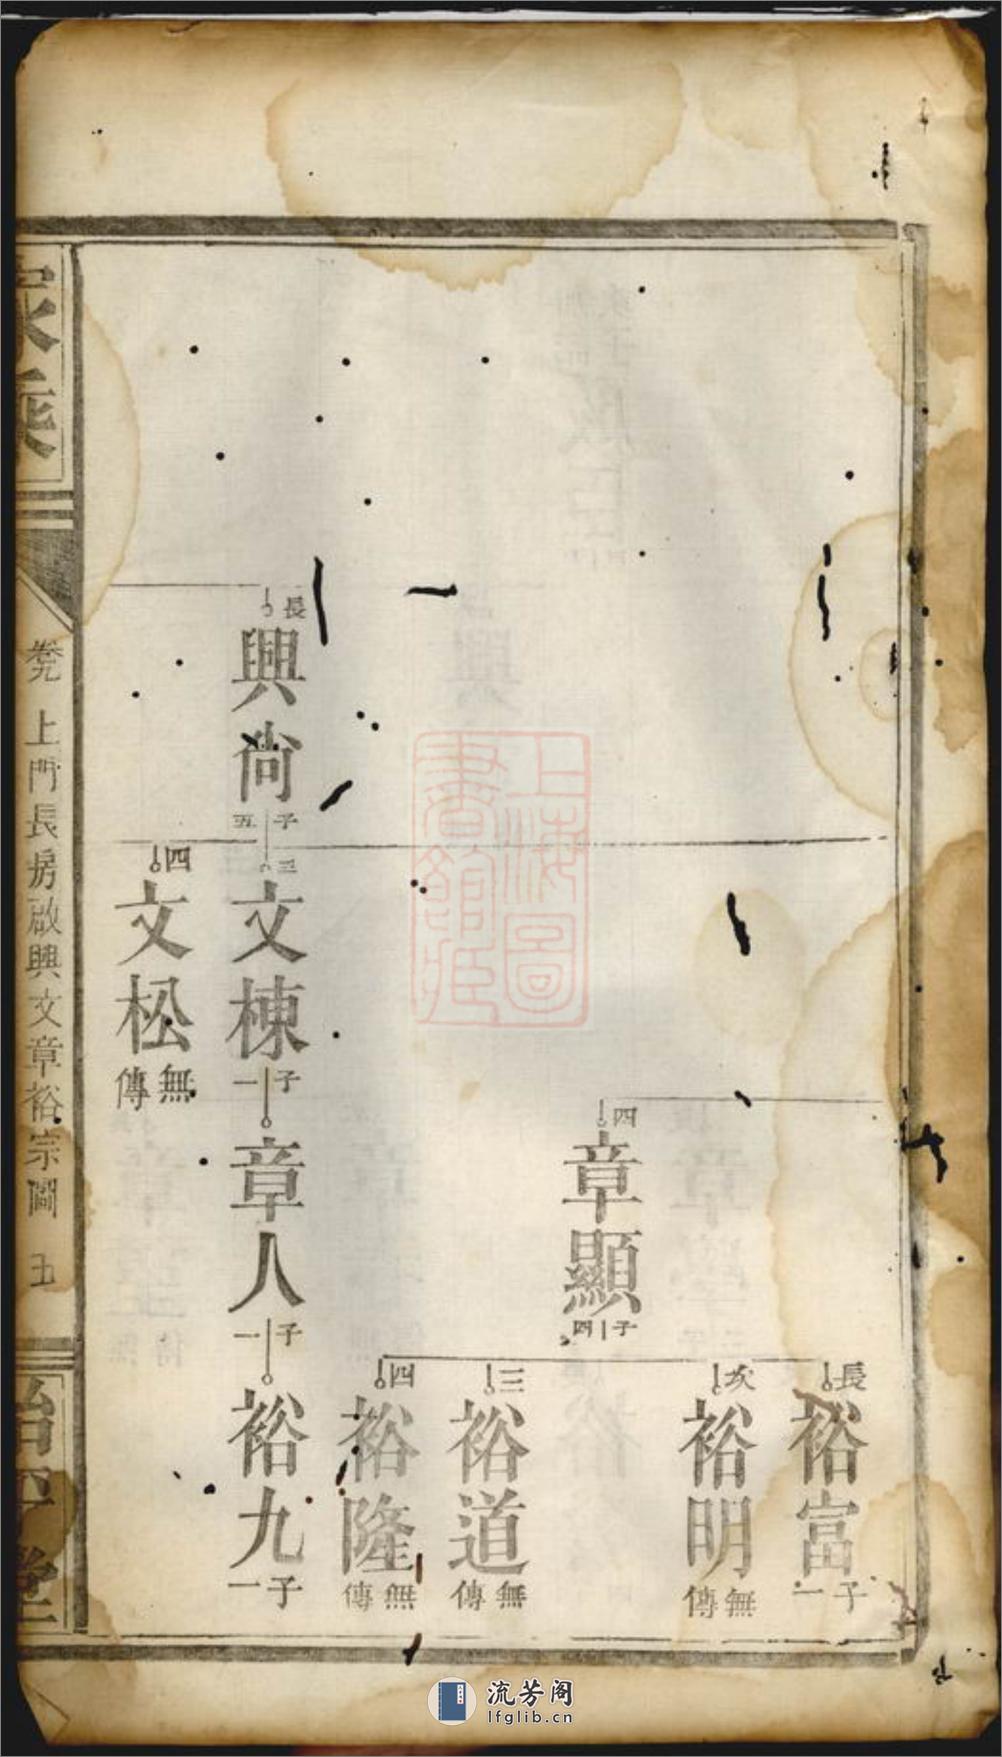 長
裕富
子一
次
裕明
無傳
四
章顯
子四
三
裕道
無傳
四
裕隆
無傳
長
興尚
子五
三
文棟
子一
章人
子一
裕九
子一
四
文松
無傳
家乘
卷九 上門長房啟興文章裕宗圖 五
治平堂
上海圖書館藏
流芳阁
lfglib.cn